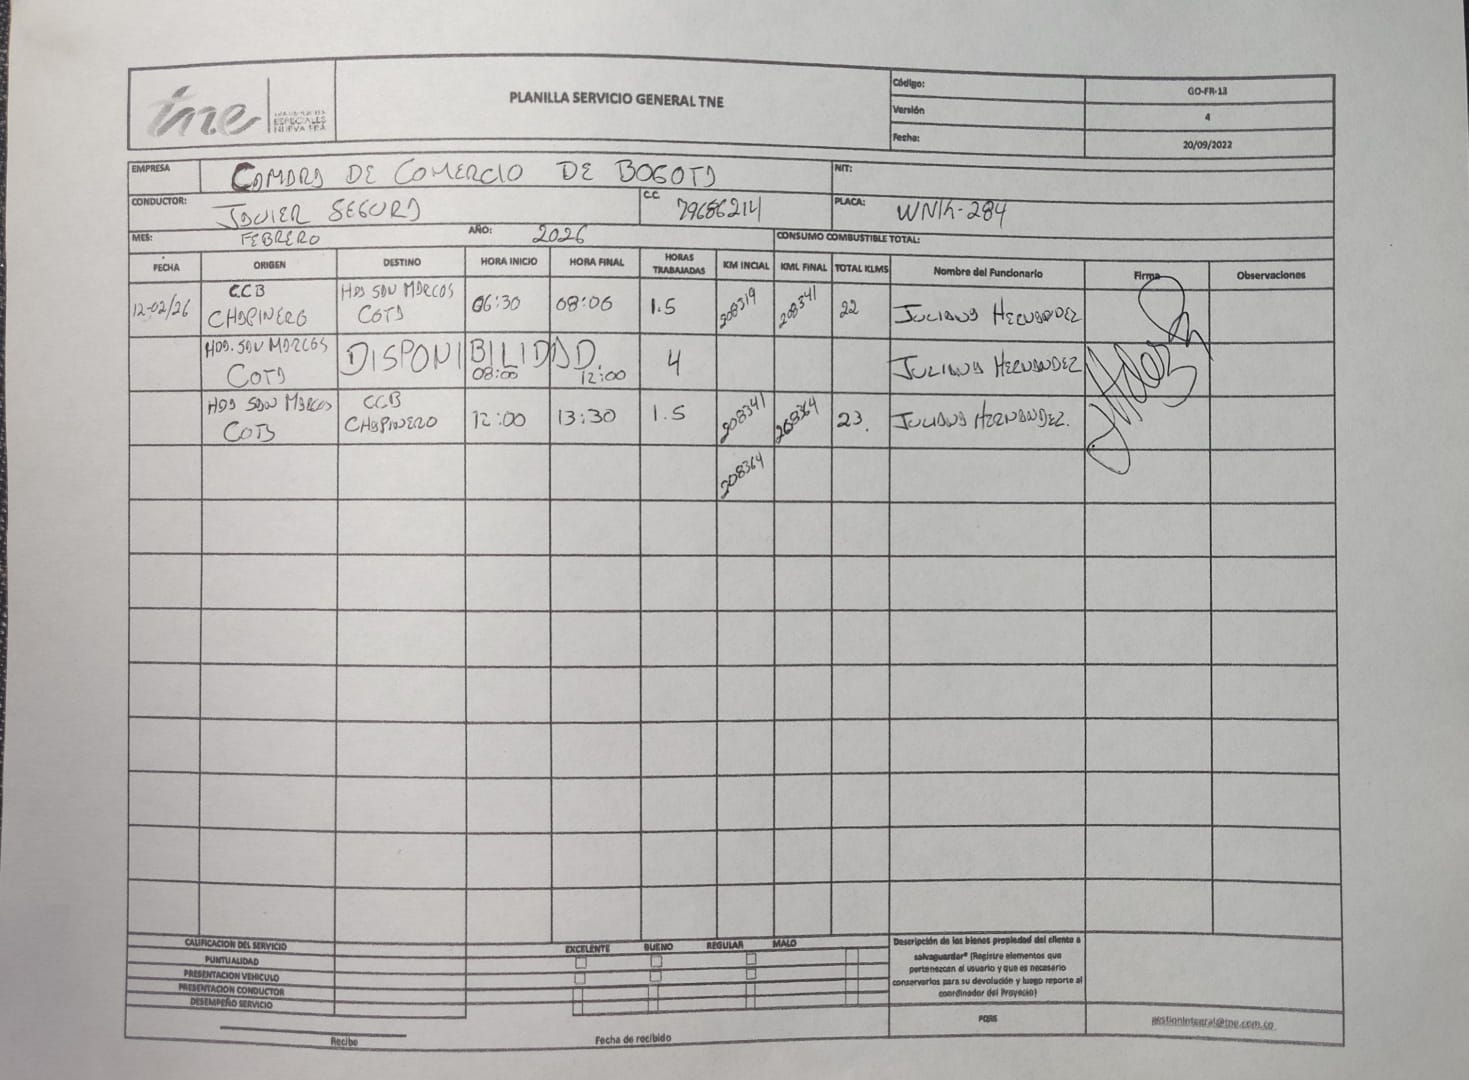 tne
ESPECIALES
NUEVA ERA
PLANILLA SERVICIO GENERAL TNE
Código: GO-FR-13
Versión 4
Fecha: 20/09/2022
EMPRESA CAMARA DE COMERCIO DE BOGOTA NIT:
CONDUCTOR: JAVIER SEGURA C.C 79686214 PLACA: WNK-284
MES: FEBRERO AÑO: 2026 CONSUMO COMBUSTIBLE TOTAL:
FECHA ORIGEN DESTINO HORA INICIO HORA FINAL HORAS TRABAJADAS KM INCIAL KML FINAL TOTAL KLMS Nombre del Funcionario Firma Observaciones
12-02/26 CCB CHAPINERO HDA SAN MARCOS COTA 06:30 08:06 1.5 208319 208341 22 JULIANA HERNANDEZ
HDA. SAN MARCOS COTA DISPONIBILIDAD. 08:00 12:00 4 JULIANA HERNANDEZ
HDA SAN MARCOS COTA CCB CHAPINERO 12:00 13:30 1.5 208341 208364 23. JULIANA HERNANDEZ.
208364
CALIFICACION DEL SERVICIO EXCELENTE BUENO REGULAR MALO
PUNTUALIDAD
PRESENTACION VEHICULO
PRESENTACION CONDUCTOR
DESEMPEÑO SERVICIO
Descripción de los bienes propiedad del cliente a
salvaguardar* (Registre elementos que
pertenezcan al usuario y que es necesario
conservarlos para su devolución y luego reporte al
coordinador del Proyecto)
PQRS gestionintegral@tne.com.co
Recibe Fecha de recibido